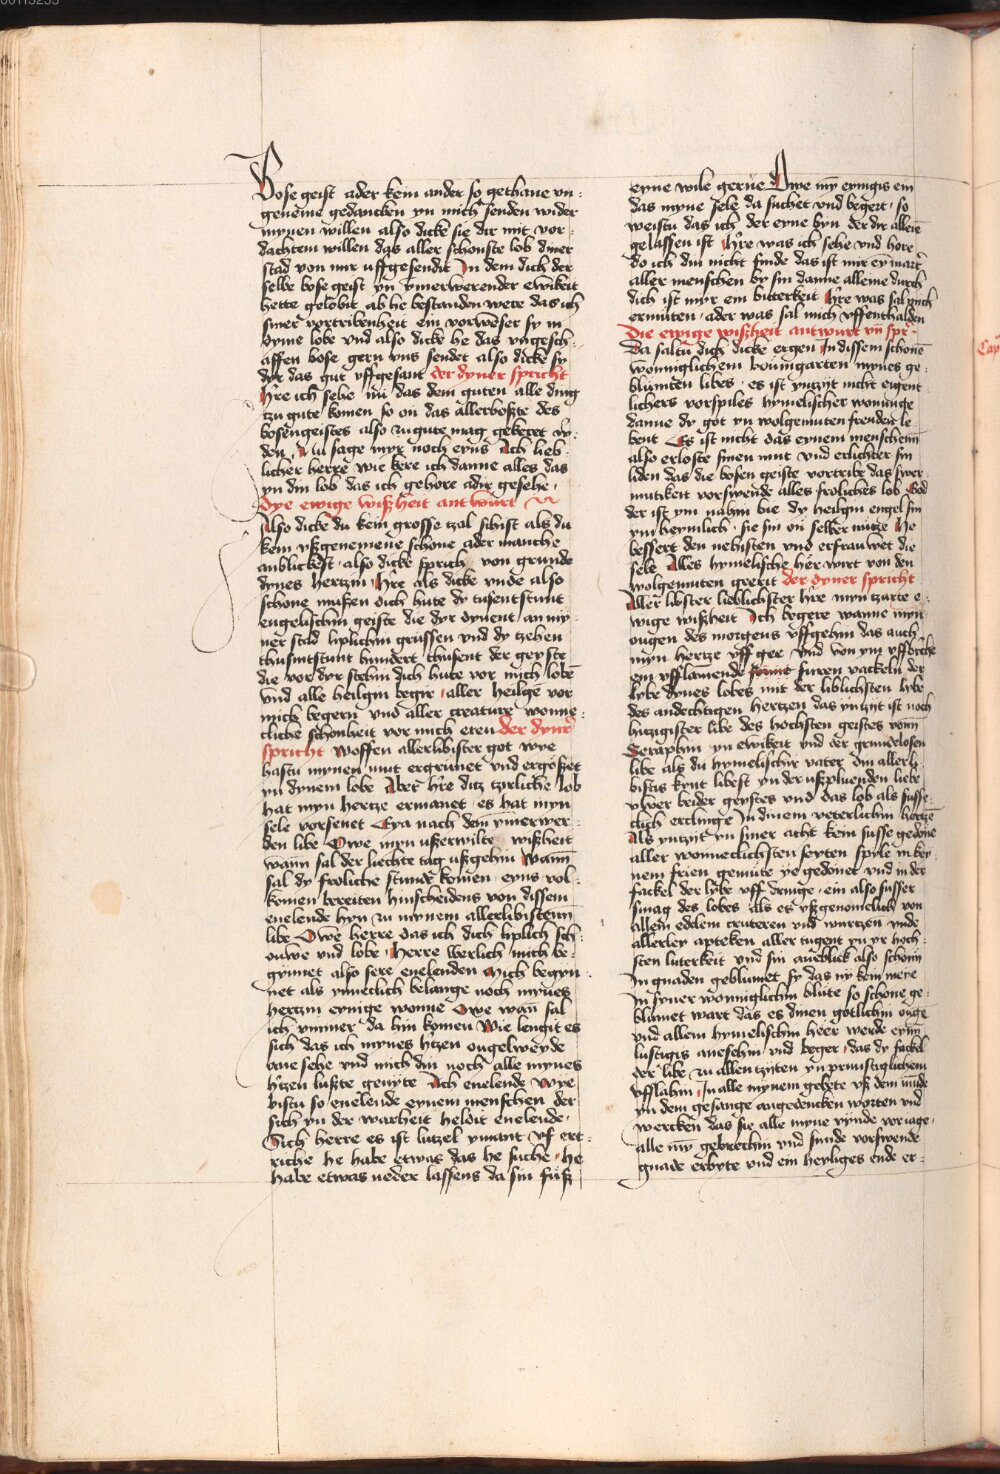 Bose geist ader kein ander so gethane vn-
geneme gedancken yn mich senden wider
mynen willen also dicke sie dir mit vor-
dachtem willen das aller schonste lob diner
stad von mir uffgesendit In dem dich der
selbe bose geist yn ymerwerender ewikeit
hette gelobit ab he bestanden were das ich
siner vortribenheit ein vorweser sy in
dyme lobe vnd also dicke he das vngesch-
affen bose gern vns sendet also dicke sy
dyr das gut vffgesant der dyner spricht
Hre ich sehe nu das dem guten alle ding
tzu gute komen so on das allerboste des
bosengeistes also zu gute mag gekeret w-
den Nu sage myr noch eyns Ach lieb-
licher herre wie kere ich danne alles das
yn din lob das ich gehore adir gesehe
Dye ewige wißheit antwurt
Also dicke du kein grosse tzal sihist als du
kein vßgenemene schone ader manche
anblickest also dicke sprich von grunde
dynes hertzin Hre als dicke vnde also
schone mußen dich hute dy tusentstunt
engelischin geiste die dyr dynent an my-
ner stad liplichin grussen vnd dy tzehen
thusintstunt hundert thusent der geyste
die vor dyr stehin dich hute vor mich lobē
vnd alle heilgin begir aller heilge vor
mich begern vnd aller creature wonne-
cliche schonheit vor mich eren der dyner
spricht Woffen allerlibister got wye
hastu mynen mut ergrunet vnd ergoßet
yn dynem lobe Aber hre ditz tzirliche lob
hat myn hertze ermanet es hat myn
sele vorsenet Eya nach dem ymerwer-
den libe Owe myn ußerwilte wißheit
wann sal der liechte tag ußgehin Wann
sal dy froliche stunde komen eyns vol-
komen bereiten hinscheidens von dissem
enelende hyn zu mynem allerlibistenn
libe Owe herre das ich dich liplich sch-
ouwe vnd lobe Herre werlich mich be-
gynnet also sere enelenden Mich begyn-
net als ynneclich belange noch mynes
hertzin eynige wonne Owe wan sal
ich ymmer da hin komen Wie lengit es
sich das ich mynes htzen ougelweyde
ane sehe vnd mich din noch alle mynes
htzen lußte genyte Ach enelende wye
bistu so enelende eynem menschen der
sich yn der warheit heldit enelende
Sich herre es ist lutzel ymant vf ert-
riche he habe etwas das he suche He
habe etwas neder lassens da sin fuß
eyne wile gerue Owe my eynigis ein
das myne sele da suchet vnd begert so
weistu das ich der eyne byn der dir allein
gelassen ist Hre was ich sehe vnd hore
do ich din nicht finde das ist mir ey mart
aller menschen by sin danne alleine durch
dich ist myr ein bitterkeit Hre was sal mich
ermuten ader was sal mich vffenthalden
Die ewige wißheit antwurt vn spr
Da saltu dich dicke ergen In dissem schone
wonniglichem boumgarten mynes ge-
blumten libes es ist yntzyt nicht eigent-
lichers vorspiles hymelischer wonunge
danne dy got yn wolgemuten freuden le-
bent Es ist nicht das eynem menschenn
also erloste sinen mut vnd erlichter sin
liden das die bosen geiste vortribe das swer-
mutkeit vorswende alles froliches lob God
der ist ym nahin bie dy heilgin engel sin
ym heymlich sie sin on selber nutze He
bessert den nehisten vnd erfrauwet die
sele Alles hymelische her wirt von den
wolgemuten geerit der dyner spricht
Aller libster lieblichster hre myn tzarte e-
wige wißheit Ich begere wanne myn
ougen des morgens vffgehin das auch
myn hertze vff gee vnd von ym vffbreche
ein vfflamende furen vackeln der
lybe dynes lobes mit der liblichsten lybe
des andechtigen hertzen das yntzyt ist noch
hitzigister libe des hochsten geistes vonn
Seraphin yn ewikeit vnd der grundelosen
libe als du hymelischir vater din allerli-
bistis kynt libest yn der ußpluenden liebe
vwer beider geystes vnd das lob als susse-
clich erclinge In dinem veterlichin hertze
Als yntzyt yn siner acht kein susse gedone
aller wonneclichsten seyten spyle in key-
nem frien gemute ye gedonet vnd in der
fackel der lybe vff dringe ein also susser
smag des lobes als es vßgenomelich von
allem edelem cruteren vnd wurtzen vnde
allerley apteken aller tugent yn yr hoch-
sten luterkeit vnd sin aneblick also schonn
In gnaden geblumet sy das ny kein meye
In syner wonniglichin blute so schone ge-
blumet wart das es dinen gotlichin ouge
vnd allem hymelischin heer werde eynn
lustigis ansehin vnd beger das dy fackel
der libe zu allen tzyten yn prinnstiglichem
vfflahin In alle mynem gebete vß dem munde
yn dem gesange angedencken worten vnd
wercken das sie alle myne vynde voriage
alle my gebrechin vnd sunde vorswende
gnade erbyte vnd ein heyliges ende er-
Cap